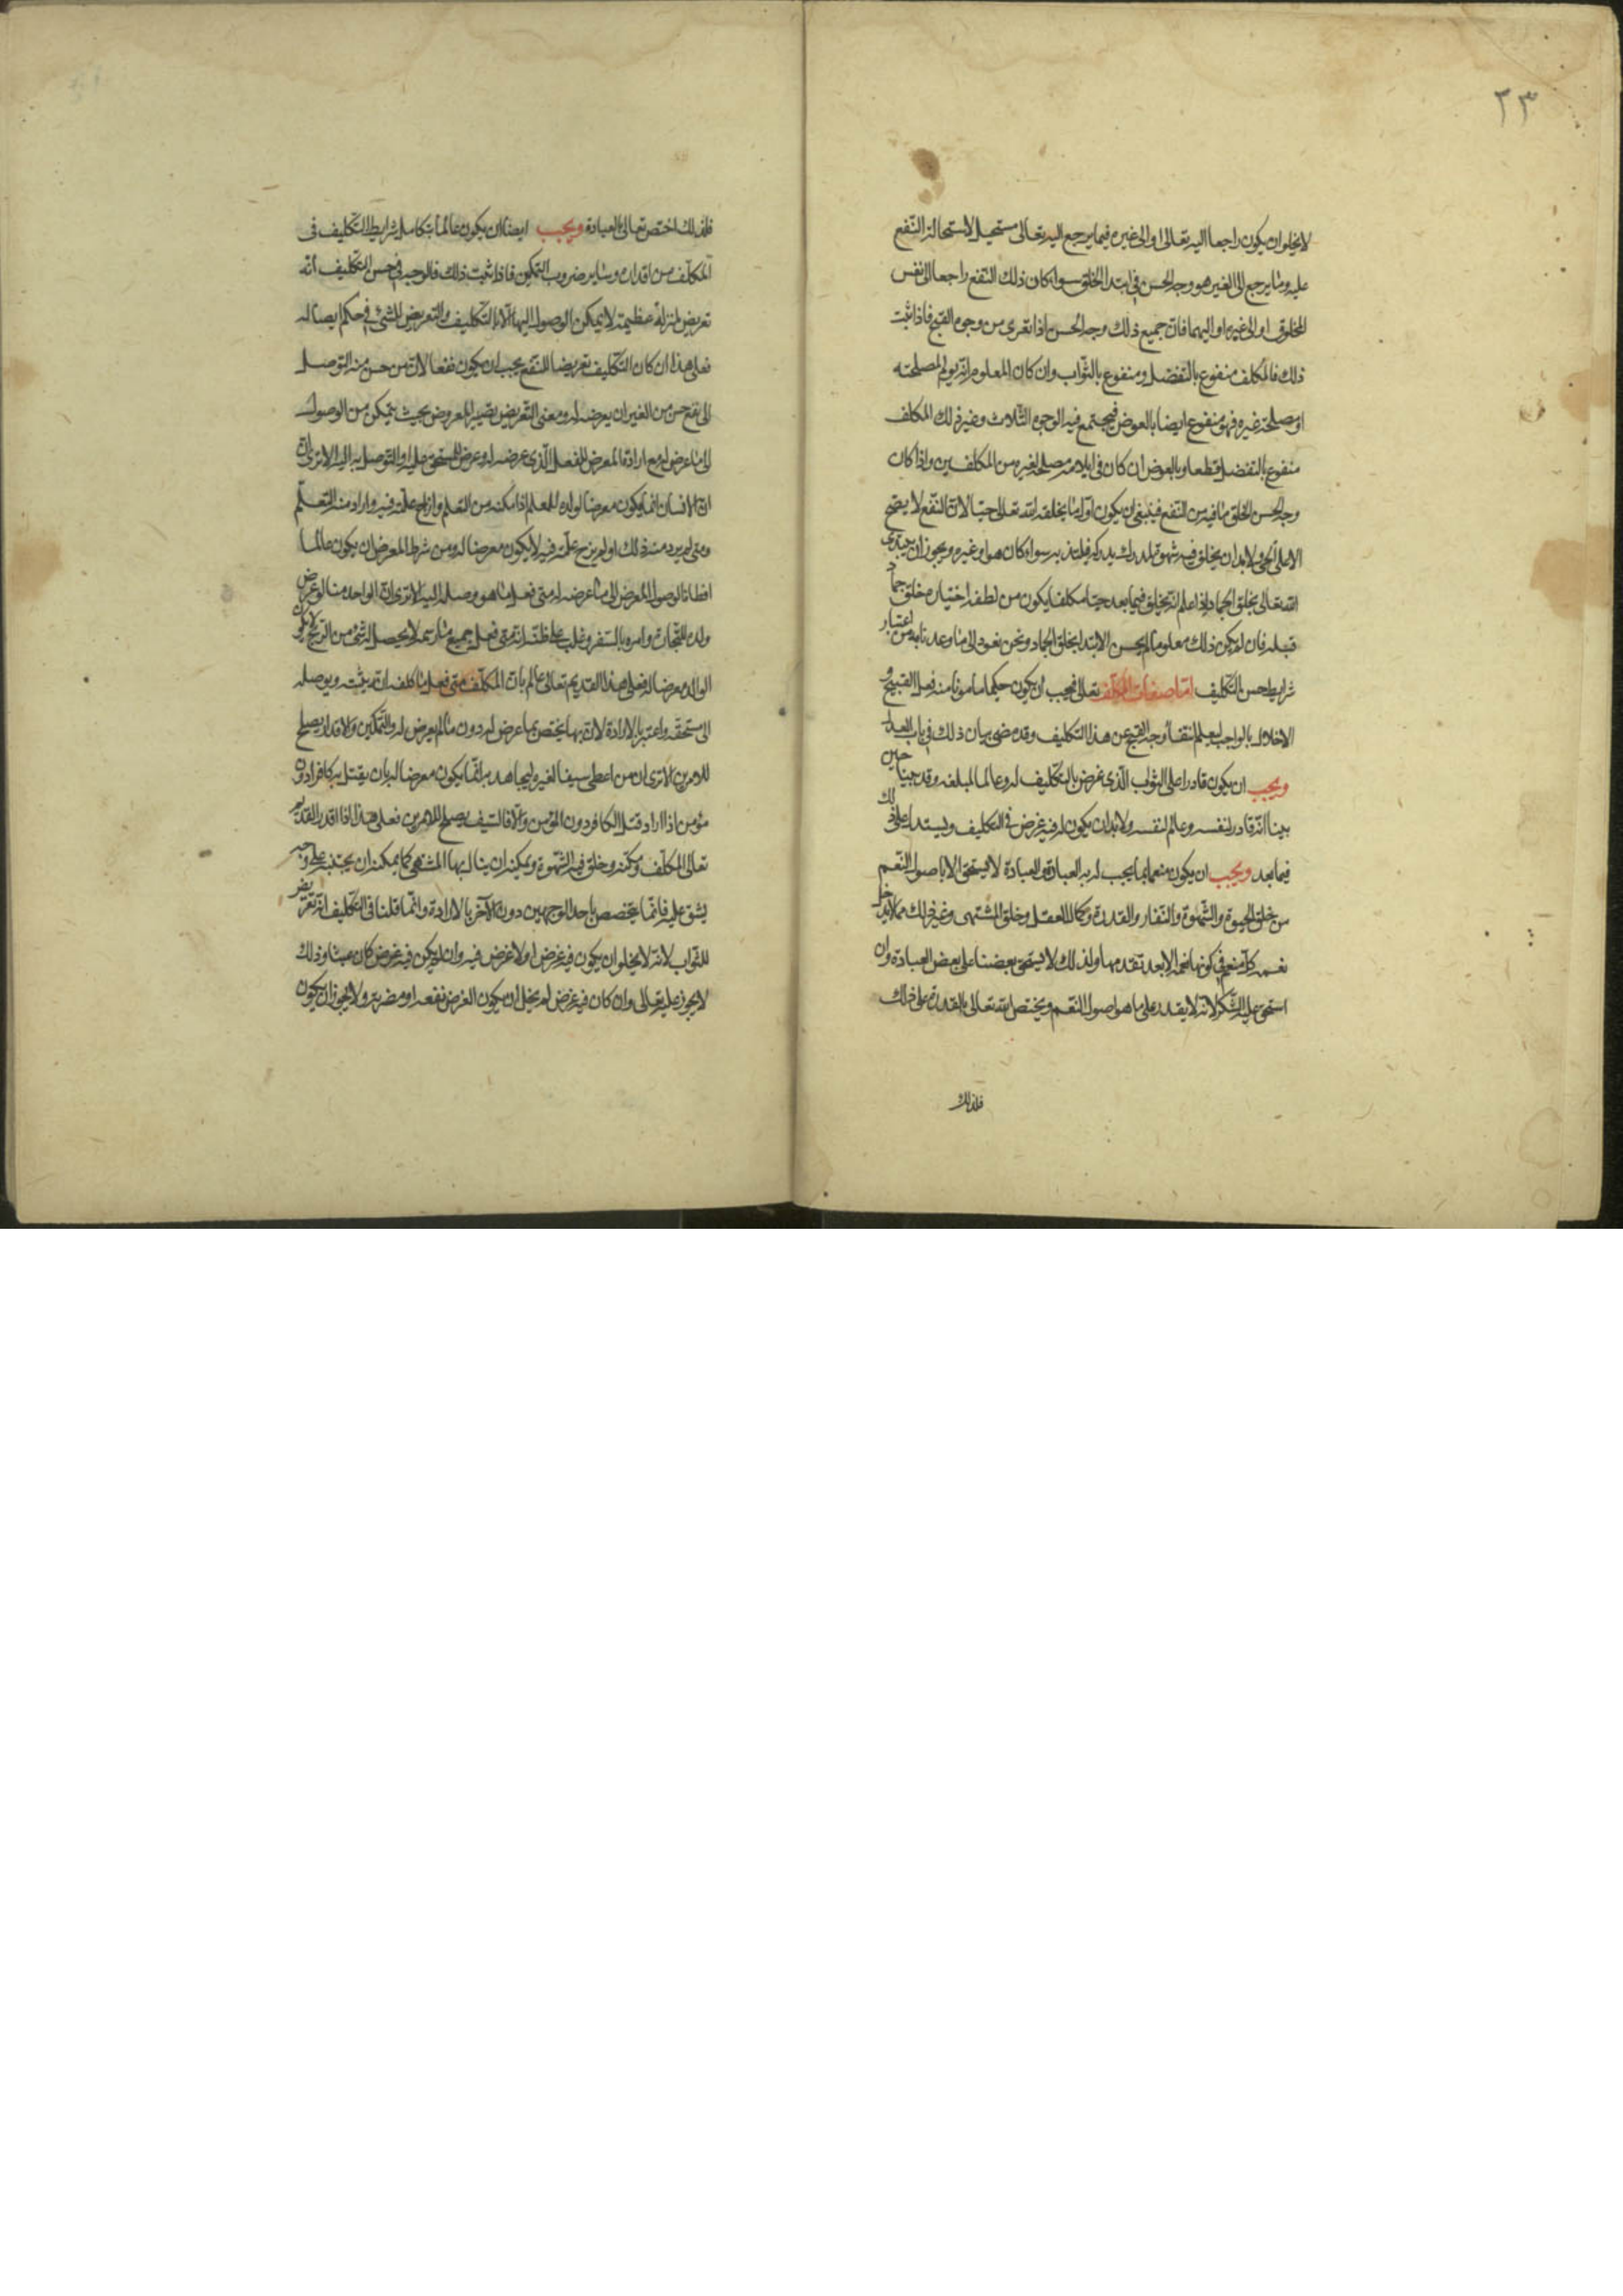 ٢٣
لا يخلو ان يكون راجعا اليه تعالى او الى غيره فيما يرجع اليه تعالى مستحيل لاستحالة النفع
عليه وما يرجع الى الغير هو وجه الحسن فى ابتدا الخلق سوا كان ذلك النفع راجعا الى نفس
المخلوق او الى غيره او اليهما فان جميع ذلك وجه الحسن اذا تعرى من وجوه القبح فاذا ثبت
ذلك فالمكلف منفوع بالتفضل ومنفوع بالثواب وان كان المعلوم انه يولم لمصلحته
او مصلحة غيره فهو منفوع ايضا بالعوض فيجتمع فيه الوجوه الثلاث وغير ذلك المكلف
منفوع بالتفضل قطعا وبالعوض ان كان فى ايلامه مصلحة لغيره من المكلفين واذا كان
وجه حسن الخلق ما فيه من النفع فينبغى ان يكون اول ما يخلقه الله تعالى حيا لان النفع لا يصح
الا على الحى ولا بد ان يخلق فيه شهوة لمدرك يدركه فيلتذ به سوا كان هو او غيره ويجوز ان يبتدى
الله تعالى بخلق الجماد اذا علم انه يخلق فيما بعد حيا مكلفا يكون من لطفه اختيار خلق جماد
قبله فان لم يكن ذلك معلوما لم يحسن الابتدا بخلق الجماد ونحن نعود الى ما وعدنا به من اعتبار
شرايط حسن التكليف اما صفات المكلف تعالى فيجب ان يكون حكيما مامونا منه فعل القبيح و
الاخلال بالواجب ليعلم انتفا وجه القبح عن هذا التكليف وقد مضى بيان ذلك فى باب العدل
ويجب ان يكون قادرا على الثواب الذى عرض بالتكليف له وعالما بمبلغه وقد حين
بينا انه قادر لنفسه وعالم لنفسه ولا بد ان يكون له فيه غرض فى التكليف ويستدل على ذلك
فيما بعد ويجب ان يكون منعما بما يجب له به العبادة والعبادة لا تستحق الا باصول النعم
من خلق الحيوة والشهوة والنفار والقدرة وكمال العقل وخلق المشتهى وغير ذلك مما لا يدخل
نعمه كل منعم فى كونها نعمة الا بعد تقدمها ولذلك لا يستحق بعضنا على بعض العبادة وان
استحق عليه الشكر لانه لا يقدر على ما هو اصول النعم ويختص الله تعالى بالقدرة على ذلك
فلذلك
فلذلك اختص تعالى بالعبادة ويجب ايضا ان يكون عالما بتكامل شرايط التكليف فى
المكلف من اقداره وساير ضروب التمكين فاذا ثبت ذلك فالوجه فى حسن التكليف انه
تعريض لمنزلة عظيمة لا يمكن الوصول اليها الا بالتكليف والتعريض للشئ فى حكم ايصاله
فعلى هذا ان كان التكليف تعريضا للنفع يجب ان يكون نفعا لان من حسن منه التوصل
الى نفع حسن من الغير ان يعرضه له ومعنى التعريض تصيير المعروض بحيث يتمكن من الوصول
الى ما عرض له مع ارادة المعرض للفعل الذى عرضه له وعرض للمستحق عليه او التوصل به اليه الا ترى ان
ان الانسان انما يكون معرضا لولده للعلم اذا مكنه من التعلم وازاح علته فيه واراد منه التعلم
ومتى لم يرد منه ذلك او لم يزح علته فيه لا يكون معرضا له ومن شرط المعرض ان يكون عالما
او ظانا لوصول المعرض الى ما عرضه له متى فعل ما هو وصله اليه الا ترى ان الواحد منا لو عرض
ولده للتجارة وامره بالسفر وغلب على ظنه انه متى فعل جميع ما رسمه لا يحصل له شئ من الربح لا يكون
الوالد معرضا له فعلى هذا القديم تعالى عالم بان المكلف متى فعل ما كلفه انه يثيبه ويوصله
الى مستحقه واعتبر بالارادة لان بها يختص بما عرض له دون ما لم يعرض له والتمكين والاقدار يصلح
للامرين الا ترى ان من اعطى سيفا لغيره ليجاهد به انما يكون معرضا له بان يقتل به كافرا دون
مؤمن اذا اراد قتل الكافر دون المؤمن والا فالسيف يصلح للامرين فعلى هذا اذا اقدر القديم
تعالى المكلف ومكنه وخلق فيه الشهوة ويمكنه ان ينال بها المشتهى كما يمكنه ان يجتنبه على وجه
يشق عليه فانما يتخصص باحد الوجهين دون الآخر بالارادة وانما قلنا فى التكليف انه تعريض
للثواب لانه لا يخلو ان يكون فيه غرض او لا غرض فيه وان لم يكن فيه غرض كان عبثا وذلك
لا يجوز عليه تعالى وان كان فيه غرض لم يخل ان يكون الغرض نفعه او مضرته ولا يجوز ان يكون